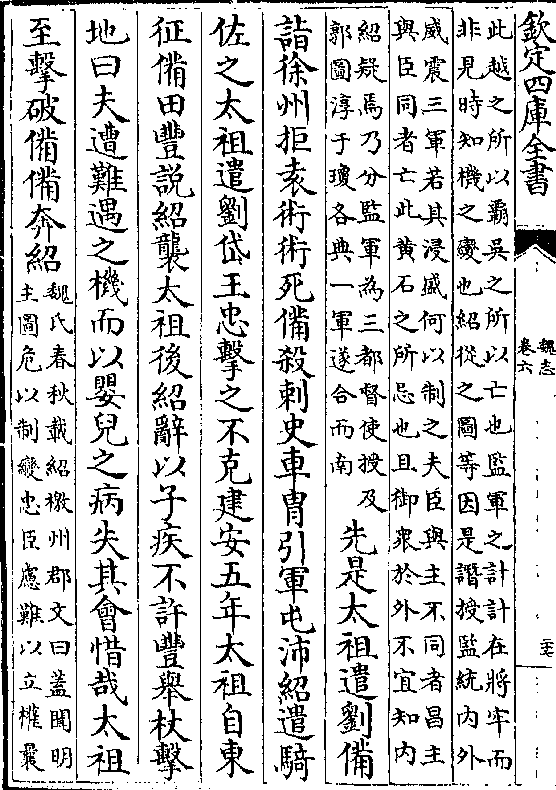 欽定四庫全書
魏志
卷六
此越之所以霸吳之所以亡也監軍之計計在將牢而
非見時知機之變也紹從之圖等因是譖授監統內外
威震三軍若其浸盛何以制之夫臣與主不同者昌主
與臣同者亡此黃石之所忌也且御衆於外不宜知內
紹疑焉乃分監軍為三都督使授及
郭圖淳于瓊各典一軍遂合而南
先是太祖遣劉備
詣徐州拒袁術術死備殺刺史車胄引軍屯沛紹遣騎
佐之太祖遣劉岱王忠擊之不克建安五年太祖自東
征備田豐說紹襲太祖後紹辭以子疾不許豐舉杖擊
地曰夫遭難遇之機而以嬰兒之病失其會惜哉太祖
至擊破備備奔紹
魏氏春秋載紹檄州郡文曰蓋聞明
主圖危以制變忠臣慮難以立權曩